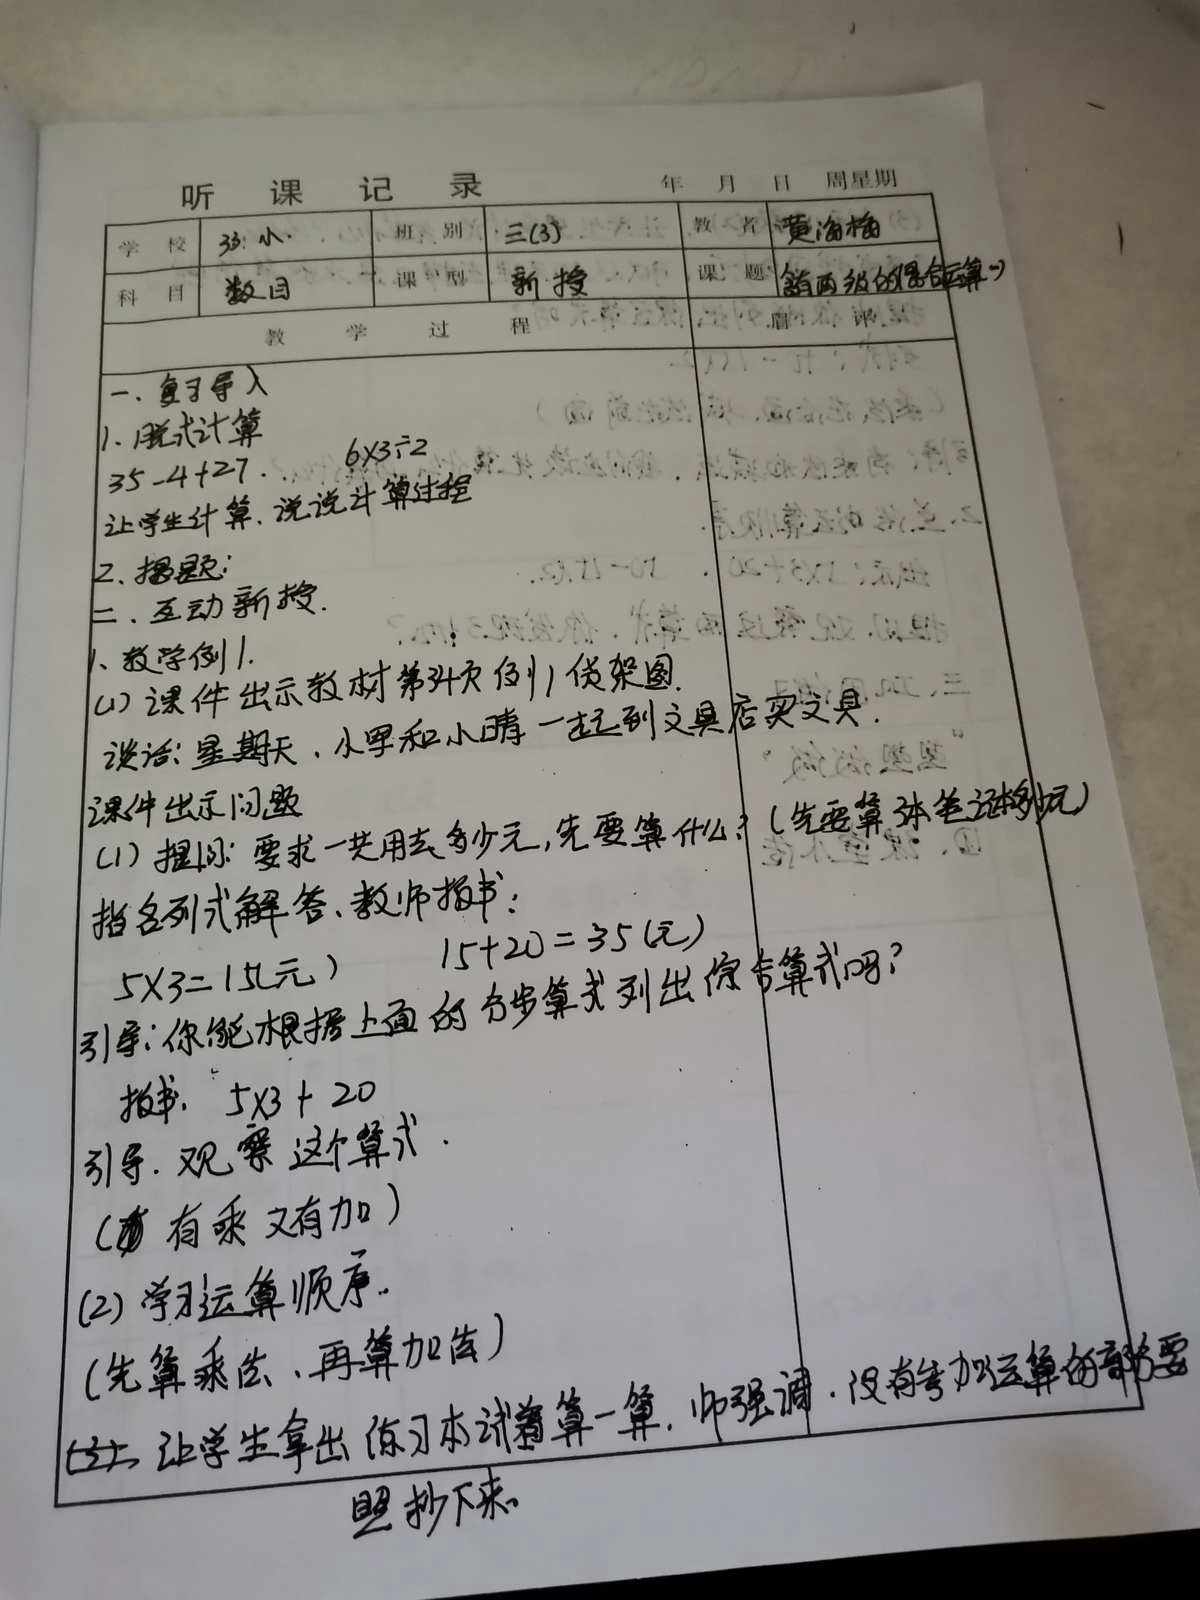 听 课 记 录 年 月 日 周星期
学 校 33小. 班 别 三(3) 教 者 黄海梅
科 目 数目 课 型 新授 课 题 含有两级的混合运算(一)
教 学 过 程 眉 评
一、复习导入
1、脱式计算
35-4+27. 6×3÷2
让学生计算、说说计算过程
2、揭题:
二、互动新授.
1、教学例1.
(1) 课件出示教材第34页例1货架图.
谈话: 星期天、小军和小晴一起到文具店买文具.
课件出示问题
(1) 提问: 要求一共用去多少元,先要算什么? (先要算3本笔记本多少元)
指名列式解答、教师板书:
5×3=15(元) 15+20=35(元)
引导: 你能根据上面的分步算式列出综合算式吗?
板书. 5×3+20
引导. 观察这个算式.
(有乘又有加)
(2) 学习运算顺序.
(先算乘法、再算加法)
(3)、让学生拿出练习本试着算一算. 师强调. 没有参加运算的部分要
照抄下来.